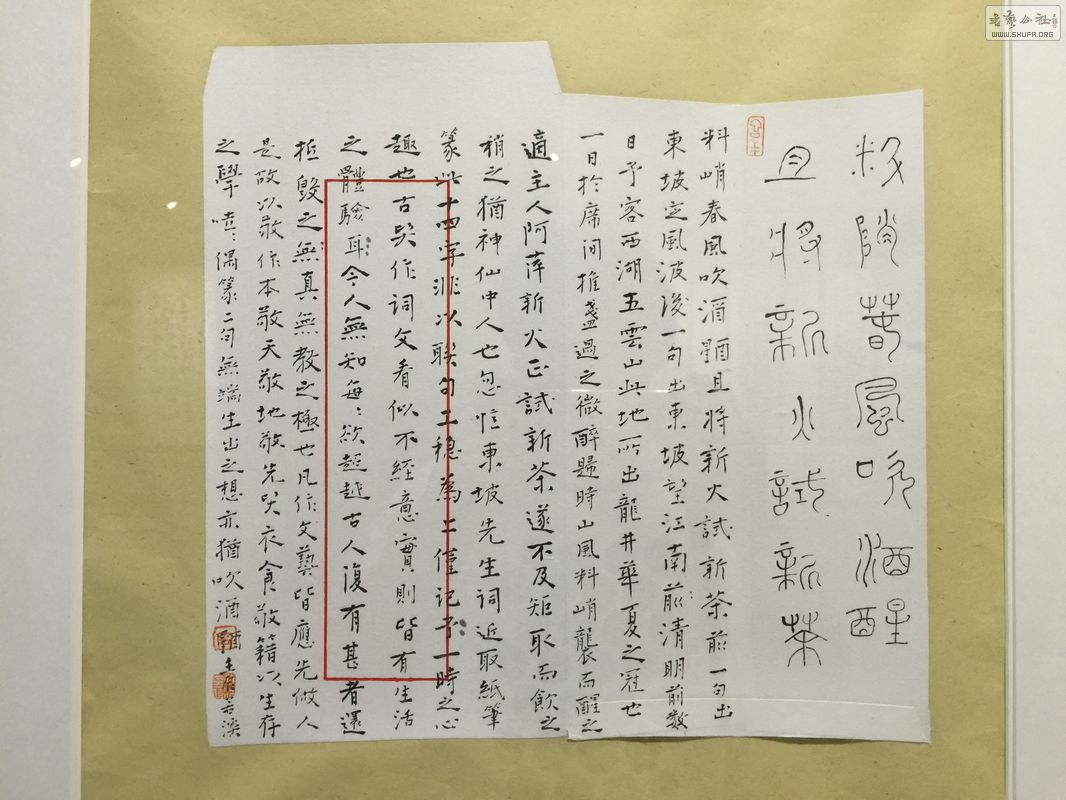 料峭春風吹酒醒
且將新火試新茶
料峭春風吹酒醒且將新火試新茶前一句出
東坡定風波後一句出東坡望江南前清明前数
日予客西湖五雲山此地所出龍井華夏之冠也
一日於席间推盞過之微醉歸時山風料峭襲而醒之
適主人阿萍新火正試新茶遂不及矩取而飲之
稍之猶神仙中人也忽憶東坡先生詞近取紙筆
篆此十四字非以聯句工穩為上僅記予一時之心
趣也古哭作詞文看似不經意實則皆有生活
之體驗耳今人無知每〻欲超越古人復有甚者還
詆毀之無真無教之極也凡作文藝皆應先做人
是故以敬作本敬天敬地敬先哭衣食敬籍以生存
之學嘻〻偶篆二句無端生出之想亦猶吹酒醒
書藝公社
WWW.SHUFA.ORG